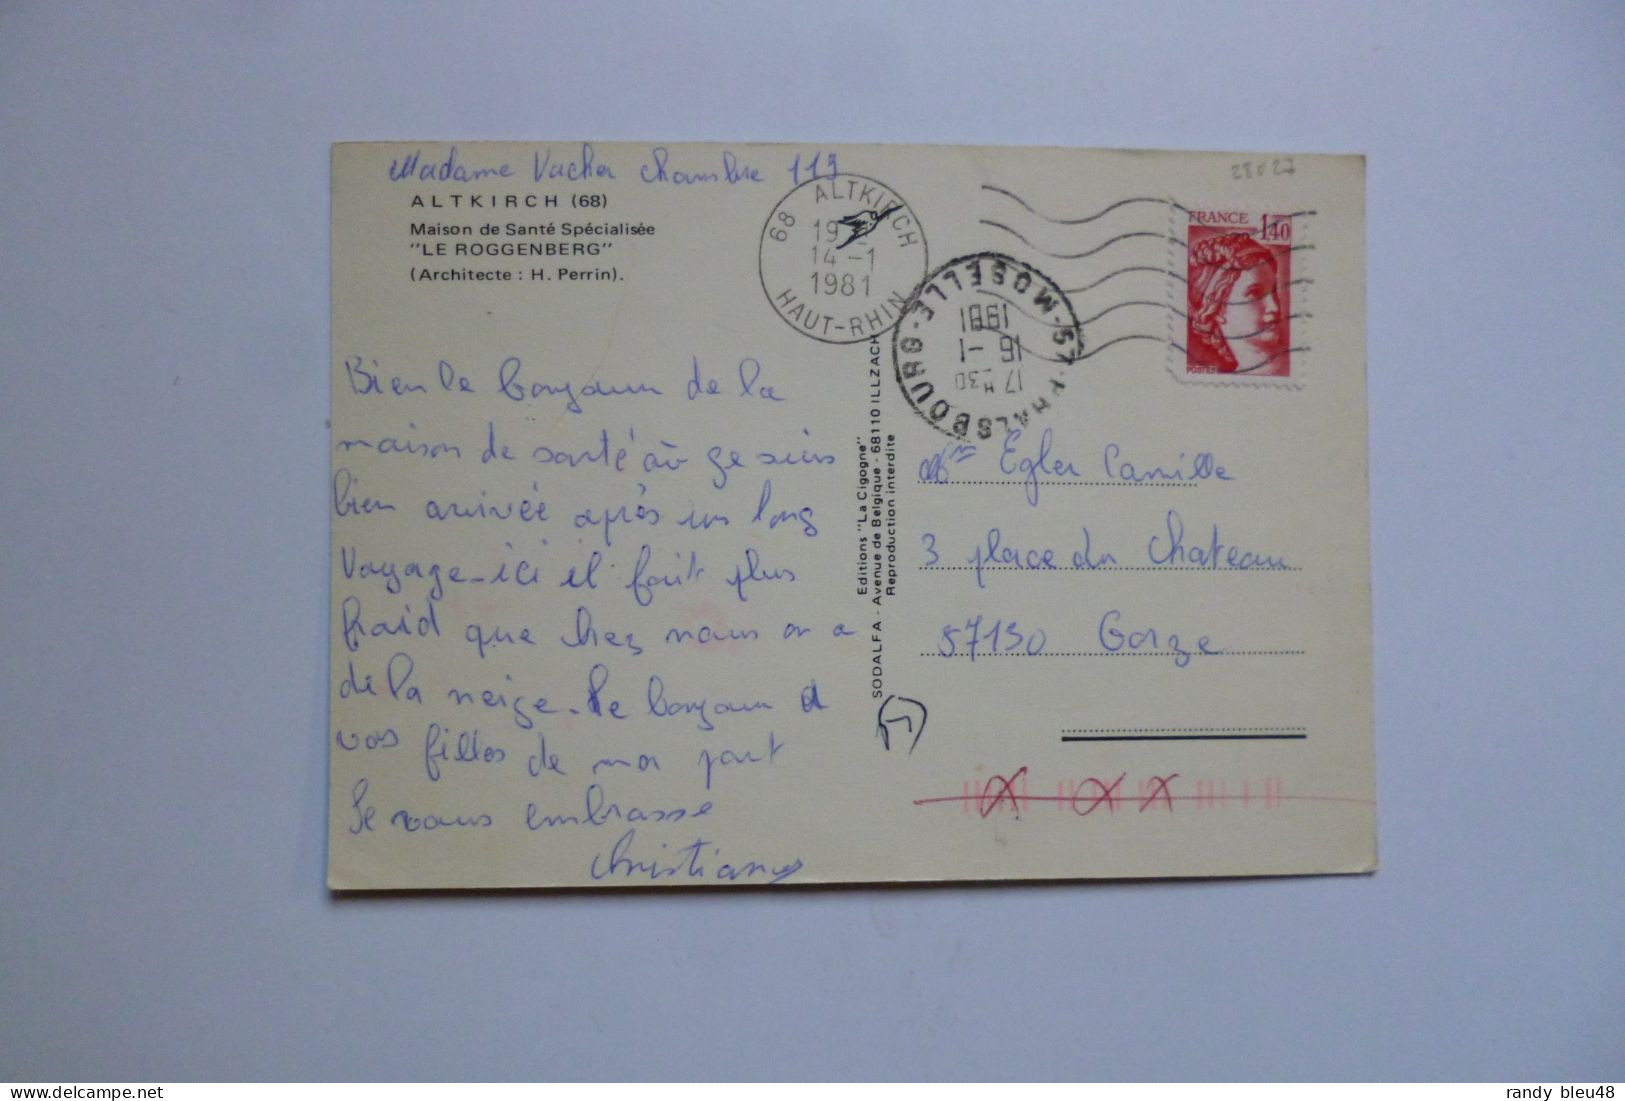 Madame Vacher chambre 119
ALTKIRCH (68)
Maison de Santé Spécialisée
"LE ROGGENBERG"
(Architecte : H. Perrin).
68 ALTKIRCH
19
14-1
1981
HAUT-RHIN
57 PHALSBOURG MOSELLE
17H30
16-1
1981
28027
FRANCE
1,40
POSTES
Bien le bonjour de la
maison de santé où je suis
bien arrivée après un long
voyage - ici il fait plus
froid que chez nous on a
de la neige - le bonjour à
vos filles de ma part
Je vous embrasse
Christiane
Editions "La Cigogne"
SODALFA - Avenue de Belgique - 68110 ILLZACH
Reproduction interdite
Egler Camille
3 place du Chateau
57130 Gorze
randy bleu48